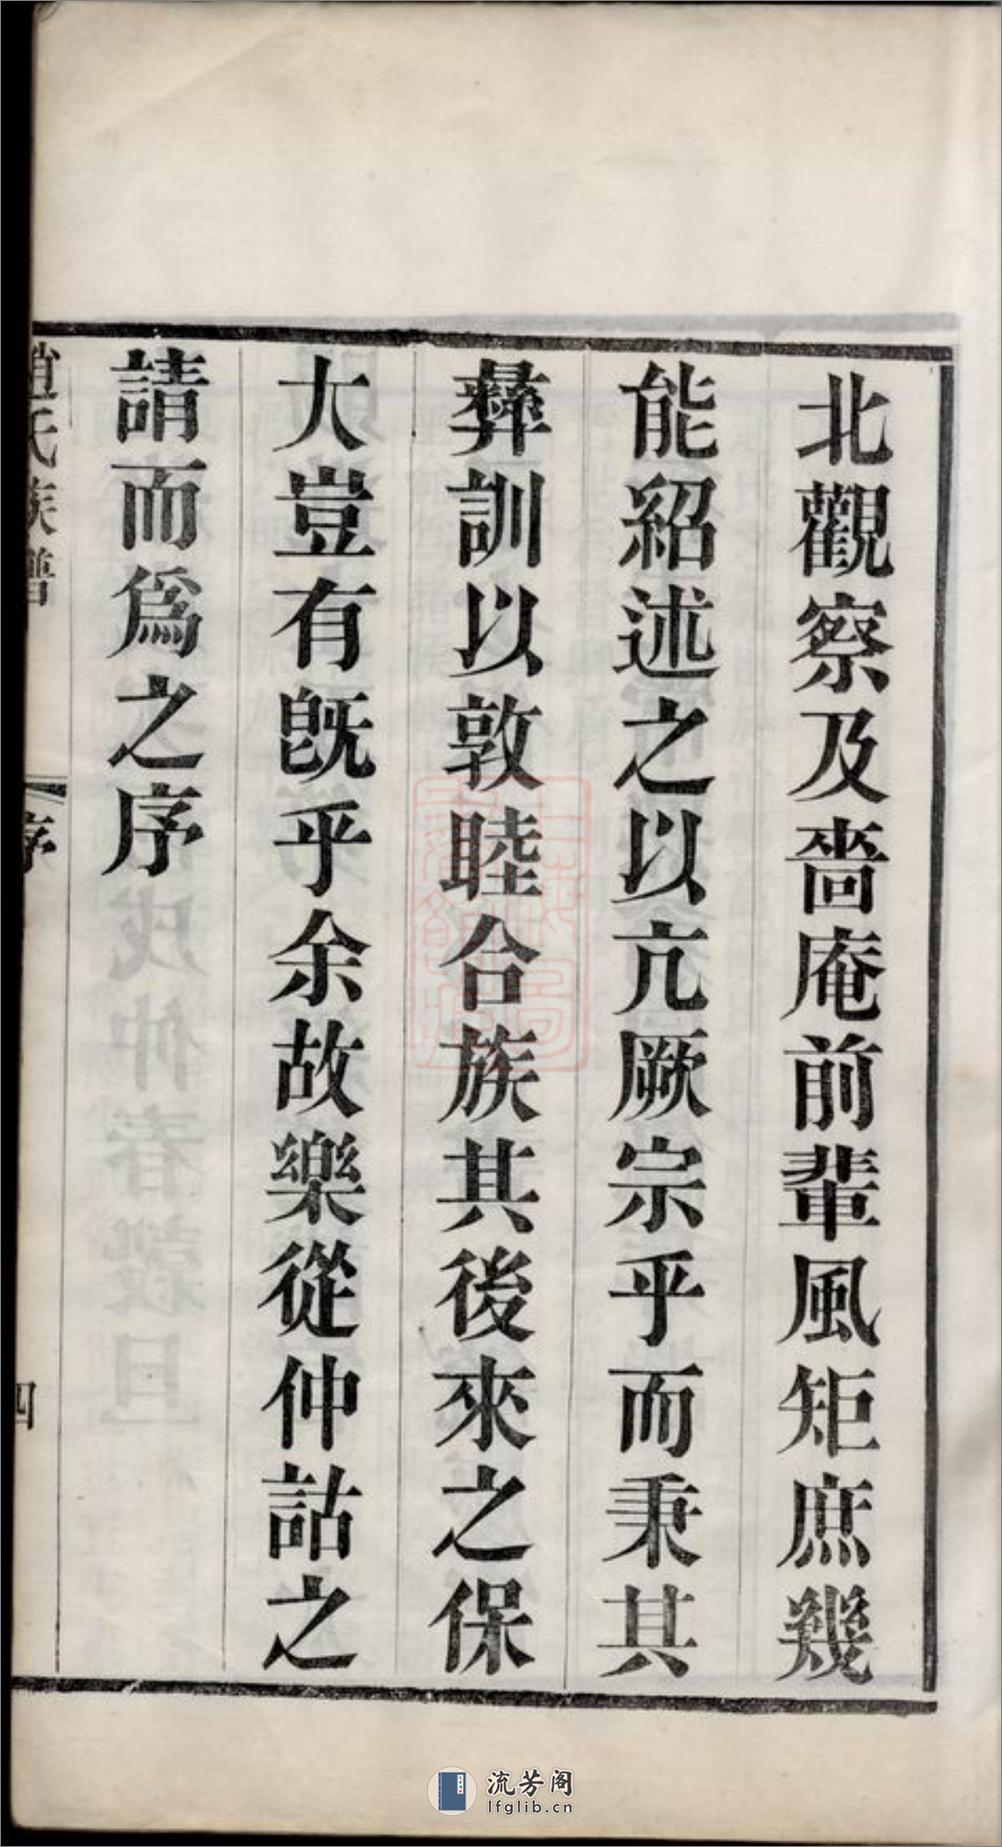 北觀察及嗇庵前輩風矩庶幾
能紹述之以亢厥宗乎而秉其
彝訓以敦睦合族其後來之保
大豈有旣乎余故樂從仲詁之
請而爲之序
趙氏族譜
序
四
流芳阁
lfglib.cn